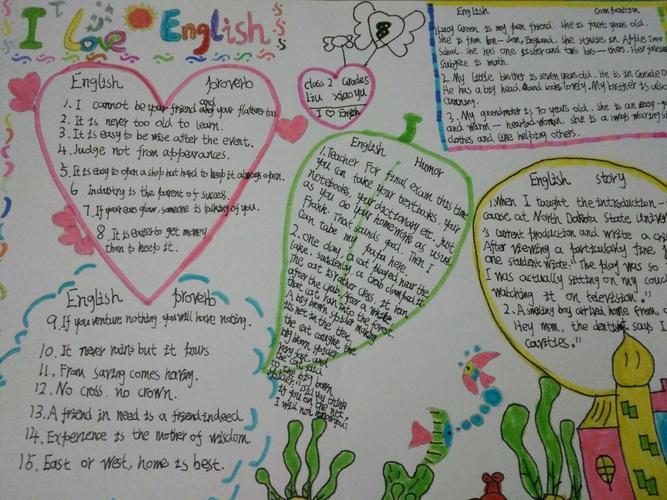 I Love English
English proverb
1. I cannot be your friend and your flatterer too.
2. It is never too old to learn.
3. It is easy to be wise after the event.
4. Judge not from appearances.
5. It is easy to open a shop but hard to keep it always open.
6 Industry is the parent of success.
7. If your ears glow, someone is talking of you.
8. It is easier to get money
than to keep it.
English proverb
9. If you venture nothing you will have nothing.
10. It never rains but it pours.
11. From saving comes having.
12. No cross. no crown.
13. A friend in need is a friend indeed
14. Experience is the mother of wisdom
15. East or west, home is best.
8
class 2 Grade8
Liu xiao yu
I English
English Humor
1. Teacher For final exam this time
you can take your textbooks, your
notebooks, your dictionary etc. Just
as you do your homework as usual
Frank. That sounds good. Then I
can take my papa here.
2. One day a cat played near the
lake. suddenly, a crab clamped it
The cat is rather class, it ran
after the crab. After a while
that cat ran into the forest.
A big brown spider making
its net in the tree,
the cat caught the
big brown spider.
the cat said
to the big brown
spider. did you think
if you on the net.
I will not recognize
English composition
1. Lucy Green is my pen friend she is four years old.
she is from London, England. she studies in Apple Tree
School. she has one sister and two brothers. Her
subject is math.
2. My little brother is seven years old. He is in Grade
He has a big head and looks lovely. My brother is also
cunning.
3. My grandmother is 70 years old. she is an easy-
and warm-hearted woman. she is always
clothes and like helping others.
English story
1. When I taught the introduction-
course at North Dakota State
's current production and write a
After viewing a particularly fine
one student wrote: "The play was so
I was actually sitting on my couch
watching it on television."
2. A boy arrived home from
Hey mom, the dentist says I
cavities."